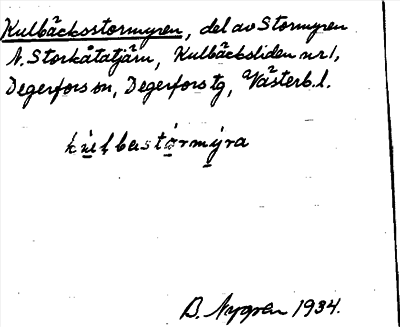 Kulbäcksstormyren, del av Stormyren
N. Storkåtatjärn, Kulbäcksliden nr 1,
Degerfors sn, Degerfors tg, Västerb. l.
B. Nygren 1934.